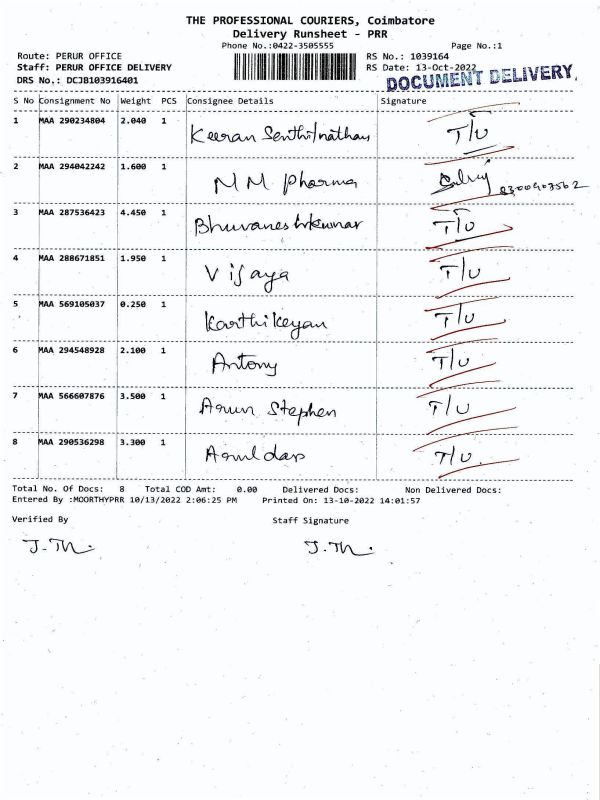 THE PROFESSIONAL COURIERS, Coimbatore
Delivery Runsheet - PRR
Phone No.:0422-3505555 Page No.:1
Route: PERUR OFFICE RS No.: 1039164
Staff: PERUR OFFICE DELIVERY RS Date: 13-Oct-2022
DRS No.: DCJB103916401 DOCUMENT DELIVERY.
S No Consignment No Weight PCS Consignee Details Signature
1 MAA 290234804 2.040 1 Keeran Senthilnathan T/U
2 MAA 294042242 1.600 1 NM pharma 8300903562
3 MAA 287536423 4.450 1 Bhuvaneshkumar T/U
4 MAA 288671851 1.950 1 Vijaya T/U
5 MAA 569105037 0.250 1 Karthikeyan T/U
6 MAA 294548928 2.100 1 Antony T/U
7 MAA 566607876 3.500 1 Arun Stephen T/U
8 MAA 290536298 3.300 1 T/U.
Total No. Of Docs: 8 Total COD Amt: 0.00 Delivered Docs: Non Delivered Docs:
Entered By :MOORTHYPRR 10/13/2022 2:06:25 PM Printed On: 13-10-2022 14:01:57
Verified By Staff Signature